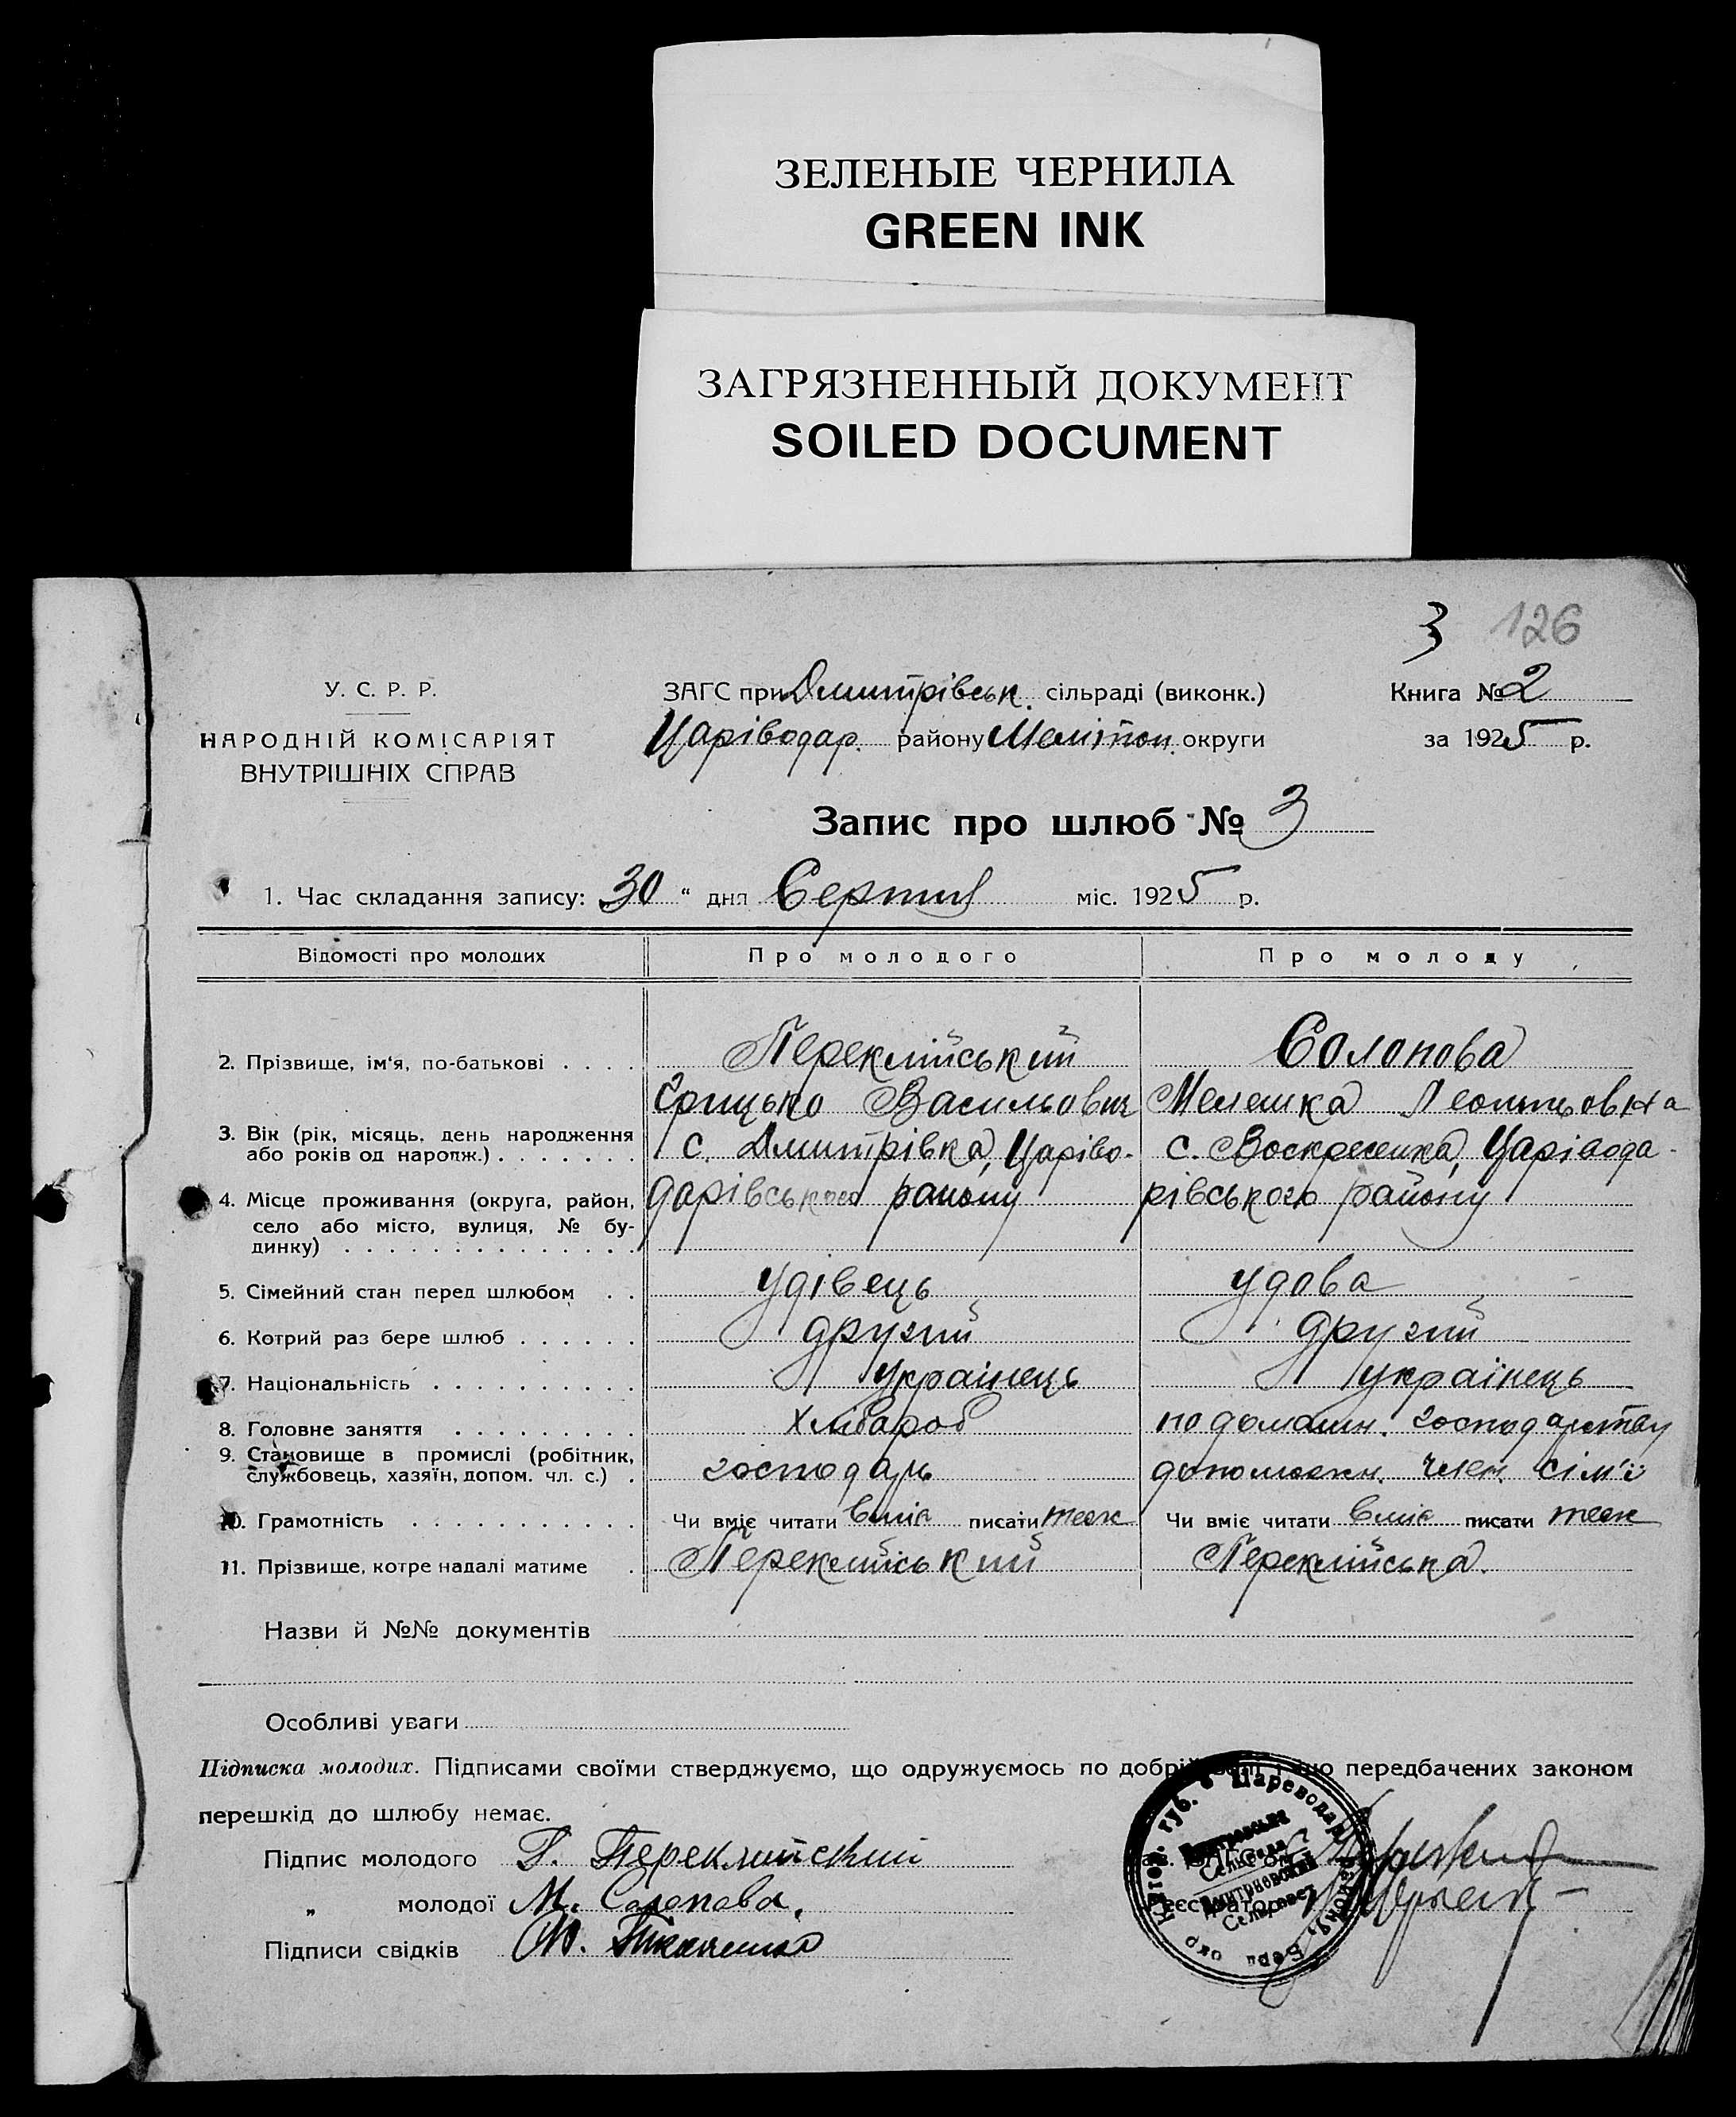 ЗЕЛЕНЫЕ ЧЕРНИЛА
GREEN INK
ЗАГРЯЗНЕННЫЙ ДОКУМЕНТ
SOILED DOCUMENT
3 126
У. С. Р. Р.
НАРОДНІЙ КОМІСАРІЯТ
ВНУТРІШНІХ СПРАВ
ЗАГС при Дмитрівськ. сільраді (виконк.)
Царіводар. району Мелітоп. округи
Книга № 2
за 1925 р.
Запис про шлюб № 3
1. Час складання запису: 30 " дня Серпня міс. 1925 р.
Відомості про молодих Про молодого Про молоду
2. Прізвище, ім'я, по-батькові . . . . Переклійський Солопова
Грицько Васильович Мелашка Леонтьовна
3. Вік (рік, місяць, день народження
або років од народж.) . . . . . . . с. Дмитрівка, Царіво- с. Воскресенка, Царівода-
4. Місце проживання (округа, район, дарівського району рівського району
село або місто, вулиця, № бу-
динку) . . . . . . . . . . . . . .
5. Сімейний стан перед шлюбом . . удівець удова
6. Котрий раз бере шлюб . . . . . . другий другий
7. Національність . . . . . . . . . . українець українець
8. Головне заняття . . . . . . . . . Хлібароб по домашн. господарству
9. Становище в промислі (робітник,
службовець, хазяїн, допом. чл. с.) . господарь допоможн. член. сім'ї
10. Грамотність . . . . . . . . . . . Чи вміє читати вміє писати теж Чи вміє читати вміє писати теж
11. Прізвище, котре надалі матиме . Переклійський Переклійська.
Назви й №№ документів
Особливі уваги
Підписка молодих. Підписами своїми стверджуємо, що одружуємось по добрій волі і що передбачених законом
перешкід до шлюбу немає.
Підпис молодого Г. Переклийский
„ молодої М. Солопова.
Підписи свідків Ткаченко
Дмитровська
Сельрада
Дмитриевский
Сельсовет